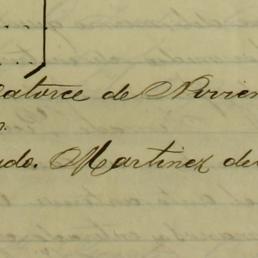 catorce de Noviem
n.
do. Martinez del